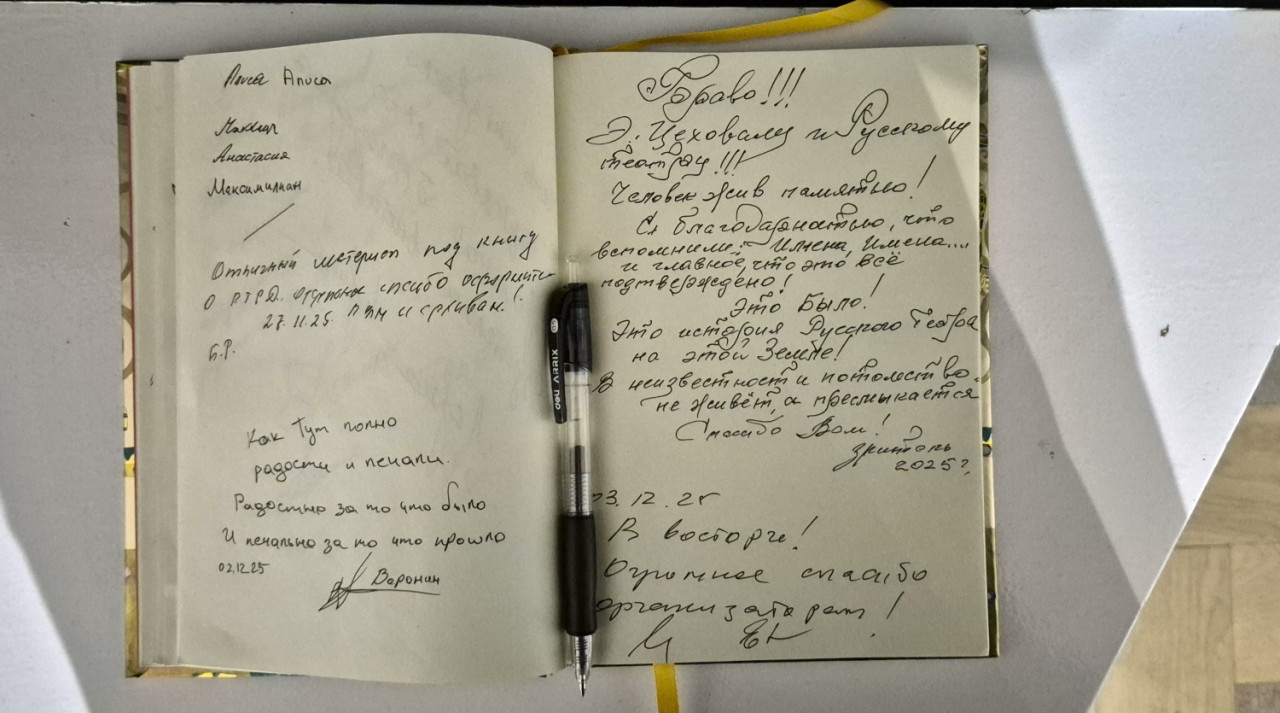 Алиса Алиса
Максим
Анастасия
Максимилиан
Отличный материал под книгу
о РТРД. спасибо
27.11.25. и архивам!
Б.Р.
Как Тут полно
радости и печали.
Радостно за то что было
И печально за то что прошло
02.12.25
Воронин
Браво!!!
Э. Цеховалу и Русскому
театру!!!
Человек жив памятью!
С благодарностью, что
вспомнили: Имена, Имена....
и главное, что это всё
подтверждено!
Это Было!
Это история Русского Театра
на этой Земле!
В неизвестности и потомство
не живёт, а пресмыкается
Спасибо Вам!
зритель
2025г.
03.12.25
В восторге!
Огромное спасибо
организаторам!
deli ARRIX